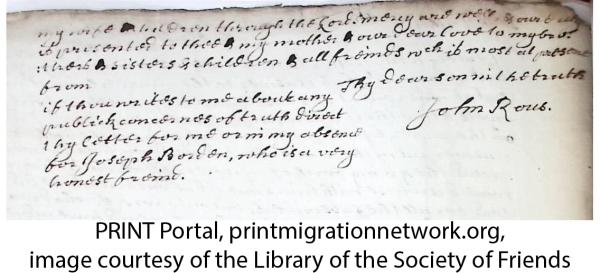 my wife & children through the Lords mercy are well, & our love
is presented to thee & my mother & our dear love to my bro:
thers & sisters & children & all freinds wch is most at present
from
Thy dear son in the truth
John Rous.
if thou writes to me about any
publick concernes of truth direct
thy Letter for me or in my absence
for Joseph Borden, who is a very
honest freind.
PRINT Portal, printmigrationnetwork.org,
image courtesy of the Library of the Society of Friends